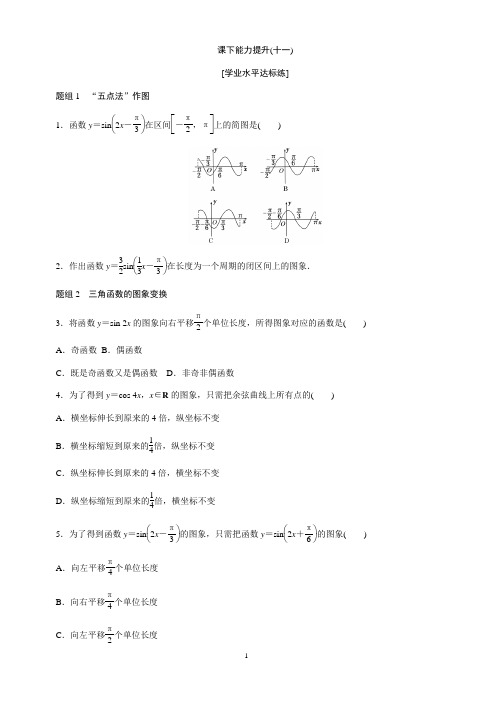 课下能力提升(十一)
[学业水平达标练]
题组1 “五点法”作图
1．函数 y＝sin(2x－π/3)在区间[－π/2，π]上的简图是( )
A B
C D
2．作出函数 y＝3/2sin(1/3x－π/3)在长度为一个周期的闭区间上的图象．
题组2 三角函数的图象变换
3．将函数 y＝sin 2x 的图象向右平移π/2个单位长度，所得图象对应的函数是( )
A．奇函数 B．偶函数
C．既是奇函数又是偶函数 D．非奇非偶函数
4．为了得到 y＝cos 4x，x∈R 的图象，只需把余弦曲线上所有点的( )
A．横坐标伸长到原来的 4 倍，纵坐标不变
B．横坐标缩短到原来的1/4倍，纵坐标不变
C．纵坐标伸长到原来的 4 倍，横坐标不变
D．纵坐标缩短到原来的1/4倍，横坐标不变
5．为了得到函数 y＝sin(2x－π/3)的图象，只需把函数 y＝sin(2x＋π/6)的图象( )
A．向左平移π/4个单位长度
B．向右平移π/4个单位长度
C．向左平移π/2个单位长度
1